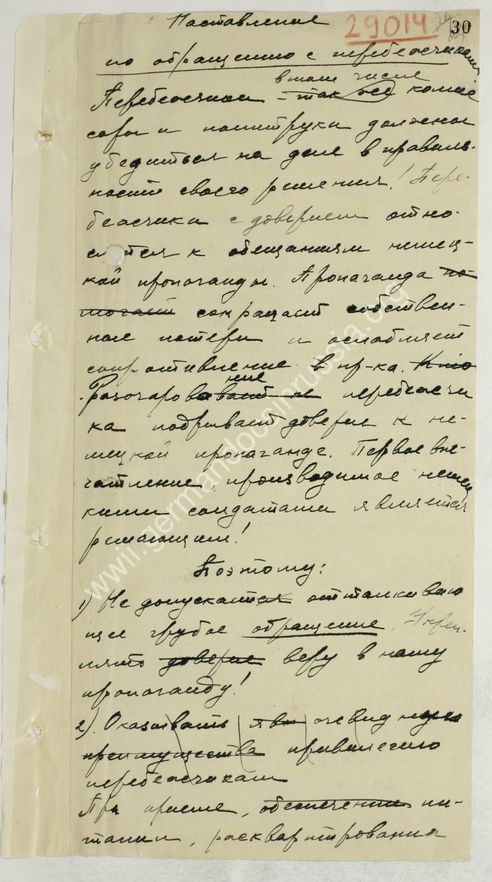 Наставление
29014
30
по обращению с перебежчиками
в том числе
Перебежчики – так все комис
сары и политруки должны
убедиться на деле в правиль-
ности своего решения! Пере-
бежчики с доверием отно-
сятся к обещаниям немец-
кой пропаганды. Пропаганда по
могает сокращает собствен-
ные потери и ослабляет
сопротивление пр-ка.
Разочарование перебежчи
ка подрывает доверие к не-
мецкой пропаганде. Первое впе-
чатление, производимое немец
кими солдатами является
решающим!
Поэтому:
1) Не допускается отталкиваю
щее грубое обращение. Укреп-
лять доверие веру в нашу
пропаганду!
2) Оказывать явн очевидную
преимущества привилегию
перебежчикам
При приеме, обеспечении пи-
тании, расквартировании
www.germandocsinrussia.org